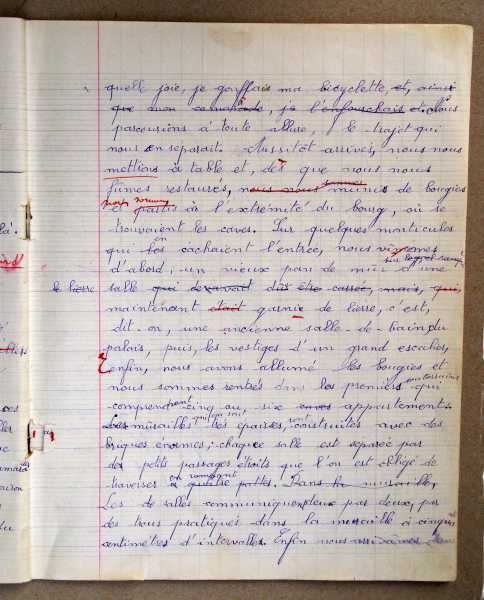 quelle joie, je gonflais ma bicyclette, et, ainsi
que mon camarade, je l'enfourchais et nous
parcourions à toute allure, le trajet qui
nous en séparait. Aussitôt arrivés, nous nous
mettions à table et, dès que nous nous
sommes
fûmes restaurés, nous nous munis de bougies
nous sommes
et partis à l'extrémité du bourg, où se
trouvaient les caves. Sur quelques monticules
en
qui les cachaient l'entrée, nous vîmes
d'abord, un vieux pan de mur d'une
le lierre
salle qui devait dû être carrée, mais, qui,
maintenant était garnie de lierre, c'est,
dit-on, une ancienne salle de bain du
palais, puis, les vestiges d'un grand escalier,
enfin, nous avons allumé les bougies et
souterrains
nous sommes rentrés dans les premiers qui
comprendraient cinq ou, six caves appartements.
Les murailles très épaisses, sont construites avec des
briques énormes; chaque salle est séparée par
des petits passages étroits que l'on est obligé de
en rampant
traverser à quatre pattes. Dans la muraille,
Les de salles communiquent deux par deux, par
des trous pratiqués dans la muraille à cinquante
centimètres d'intervalles. Enfin nous arrivâmes dans